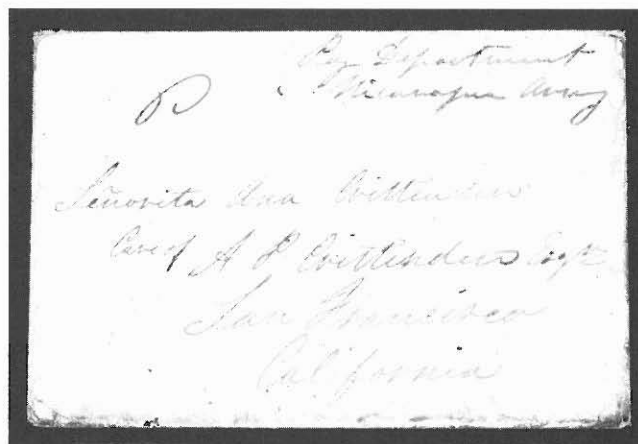 Pay Department
Nicaragua Army
P
Señorita Ana Crittenden
Care of A P Crittenden Esqr
San Francisco
California